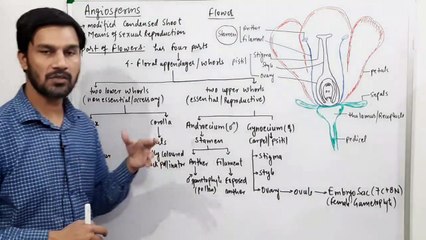 Angiosperms
Flower
→ modified Condensed Shoot
→ Means of sexual Reproduction
Part of Flowers: has four parts
4 - Floral appendages/whorls
Pistil
two lower whorls
(non essential/accessory)
two upper whorls
(essential/Reproductive)
Corolla
Androecium (♂)
Gynoecium (♀)
Carpel/Pistil
Stamen
Anther
Filament
♂ gametophyte
(pollen)
Exposed
anther
coloured
pollinator
→ Stigma
→ Style
→ Ovary → Ovule → Embryo Sac (7C+8N)
(Female Gametophyte)
Stamen
Anther
filament
Stigma
Style
Ovary
petals
Sepals
thalamus/Receptacle
pedicel